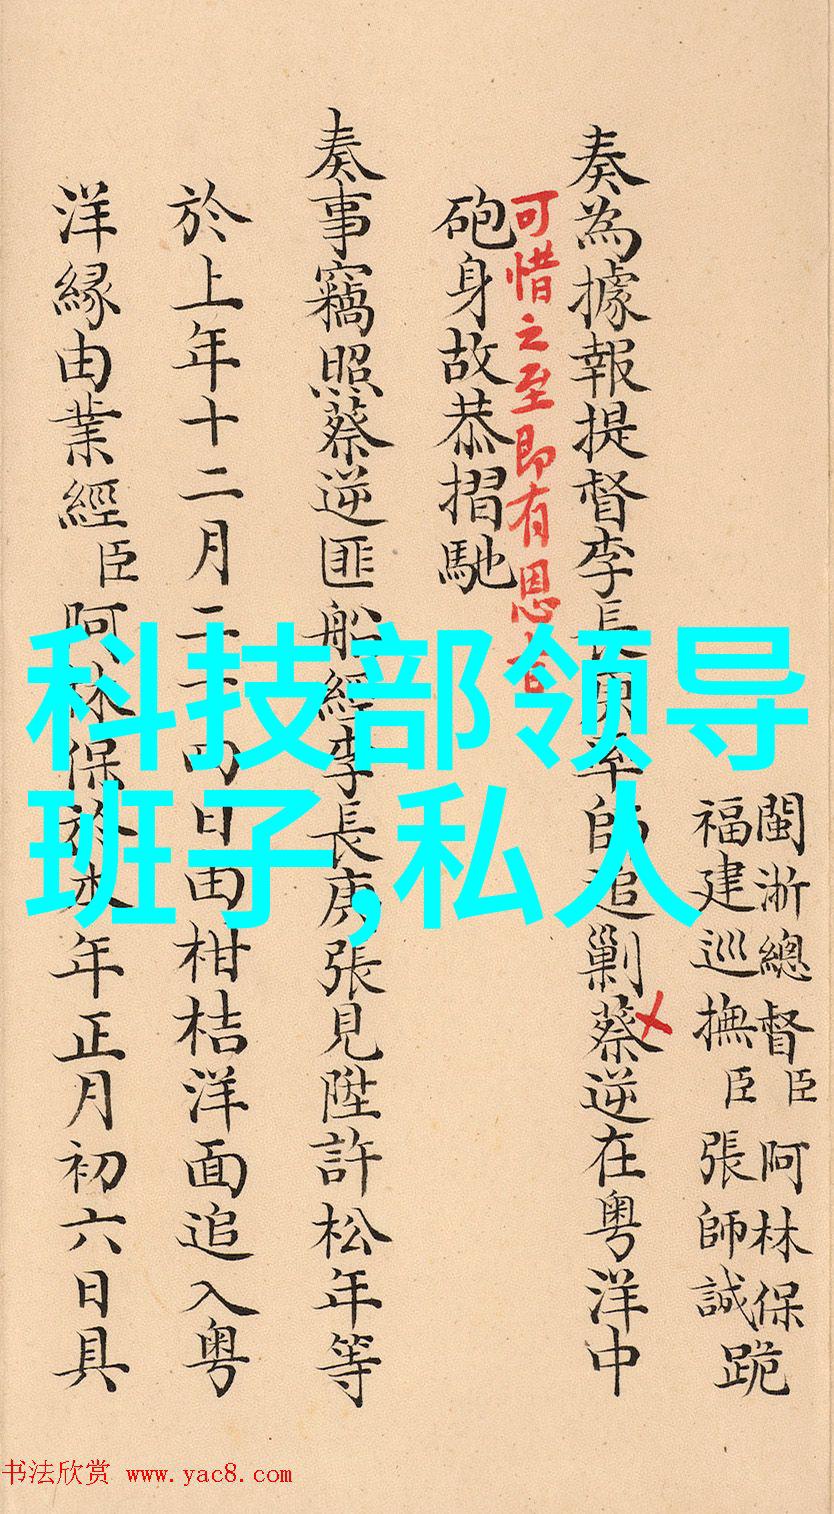 閩浙總督臣阿林保
福建巡撫臣張師誠跪
奏為據報提督李長庚率師追剿蔡逆在粤洋中
可惜之至即有恩旨
砲身故恭摺馳
奏事竊照蔡逆匪船經李長庚張見陞許松年等
於上年十二月二十四日由柑桔洋面追入粤
洋緣由業經臣阿林保於本年正月初六日具
科技部领导
班子,私人
书法欣赏 www.yac8.com